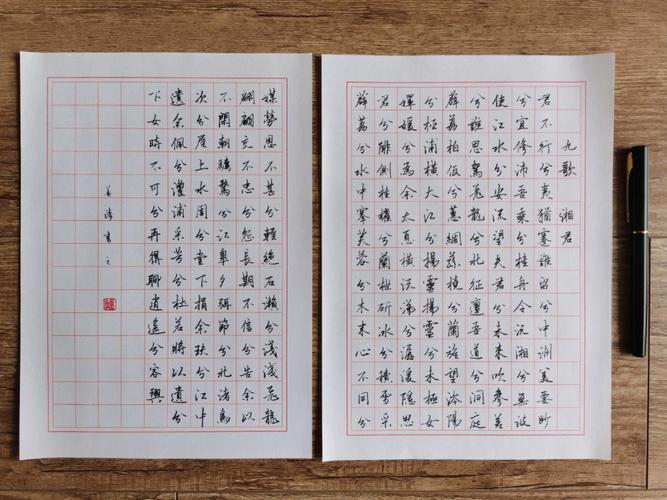 九歌 湘君
君不行兮夷猶蹇誰留兮中洲美要眇
兮宜修沛吾乘兮桂舟令沅湘兮無波
使江水兮安流望夫君兮未來吹參差
兮誰思駕飛龍兮北征邅吾道兮洞庭
薜荔柏兮蕙綢蓀橈兮蘭旌望涔陽
兮極浦橫大江兮揚靈揚靈兮未極女
嬋媛兮為余太息橫流涕兮潺湲隱思
君兮陫側桂櫂兮蘭枻斫冰兮積雪采
薜荔兮水中搴芙蓉兮木末心不同兮
媒勞恩不甚兮輕絕石瀨兮淺淺飛龍
翩翩交不忠兮怨長期不信兮告余以
不閒朝騁騖兮江皋夕弭節兮北渚鳥
次兮屋上水周兮堂下捐余玦兮江中
遺余佩兮澧浦采芳兮杜若將以遺兮
下女時不可兮再得聊逍遙兮容與
書之